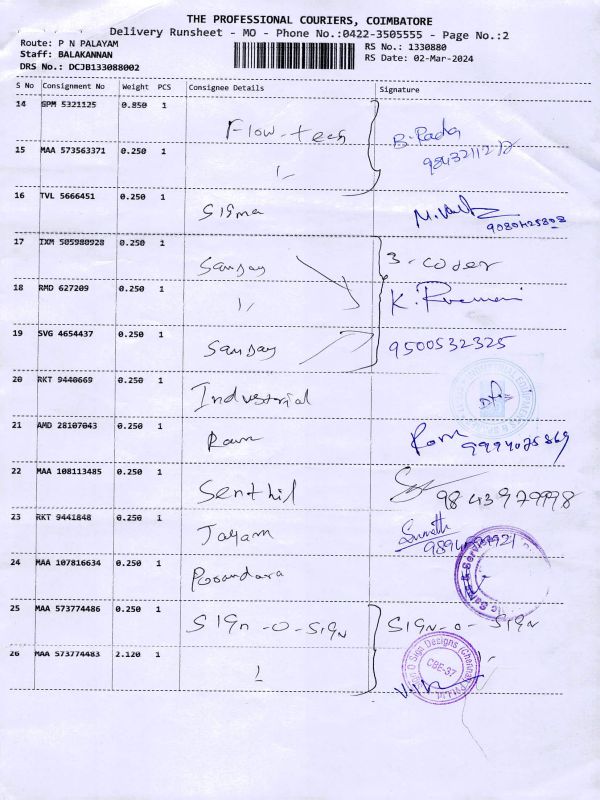 THE PROFESSIONAL COURIERS, COIMBATORE
Delivery Runsheet - MO - Phone No.:0422-3505555 - Page No.:2
Route: P N PALAYAM
Staff: BALAKANNAN
DRS No.: DCJB133088002
RS No.: 1330880
RS Date: 02-Mar-2024
S No Consignment No Weight PCS Consignee Details Signature
14 GPM 5321125 0.850 1 Flow-tech B. Radha
15 MAA 573563371 0.250 1 "
16 TVL 5666451 0.250 1 Sigma
17 IXM 505980928 0.250 1 Sanjay 3-coder
18 RMD 627209 0.250 1 " K.
19 SVG 4654437 0.250 1 Sanjay 9500532325
20 RKT 9440669 0.250 1 Industrial
21 AMD 28107043 0.250 1 Ram Ram 9994075869
22 MAA 108113485 0.250 1 Senthil 9843979998
23 RKT 9441848 0.250 1 Jayam
24 MAA 107816634 0.250 1
25 MAA 573774486 0.250 1 SIGn-O-SIGN SIGN-O-SIGN
26 MAA 573774483 2.120 1 "
Sign O Sign Designs (Chennai)
CBE-37